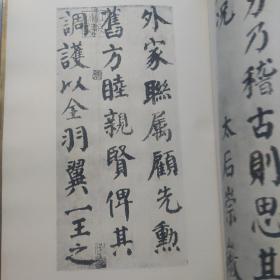 乃稽古則思其
太后崇
外家聯属顧先勳
舊方睦親賢俾其
調護以全羽翼一王之